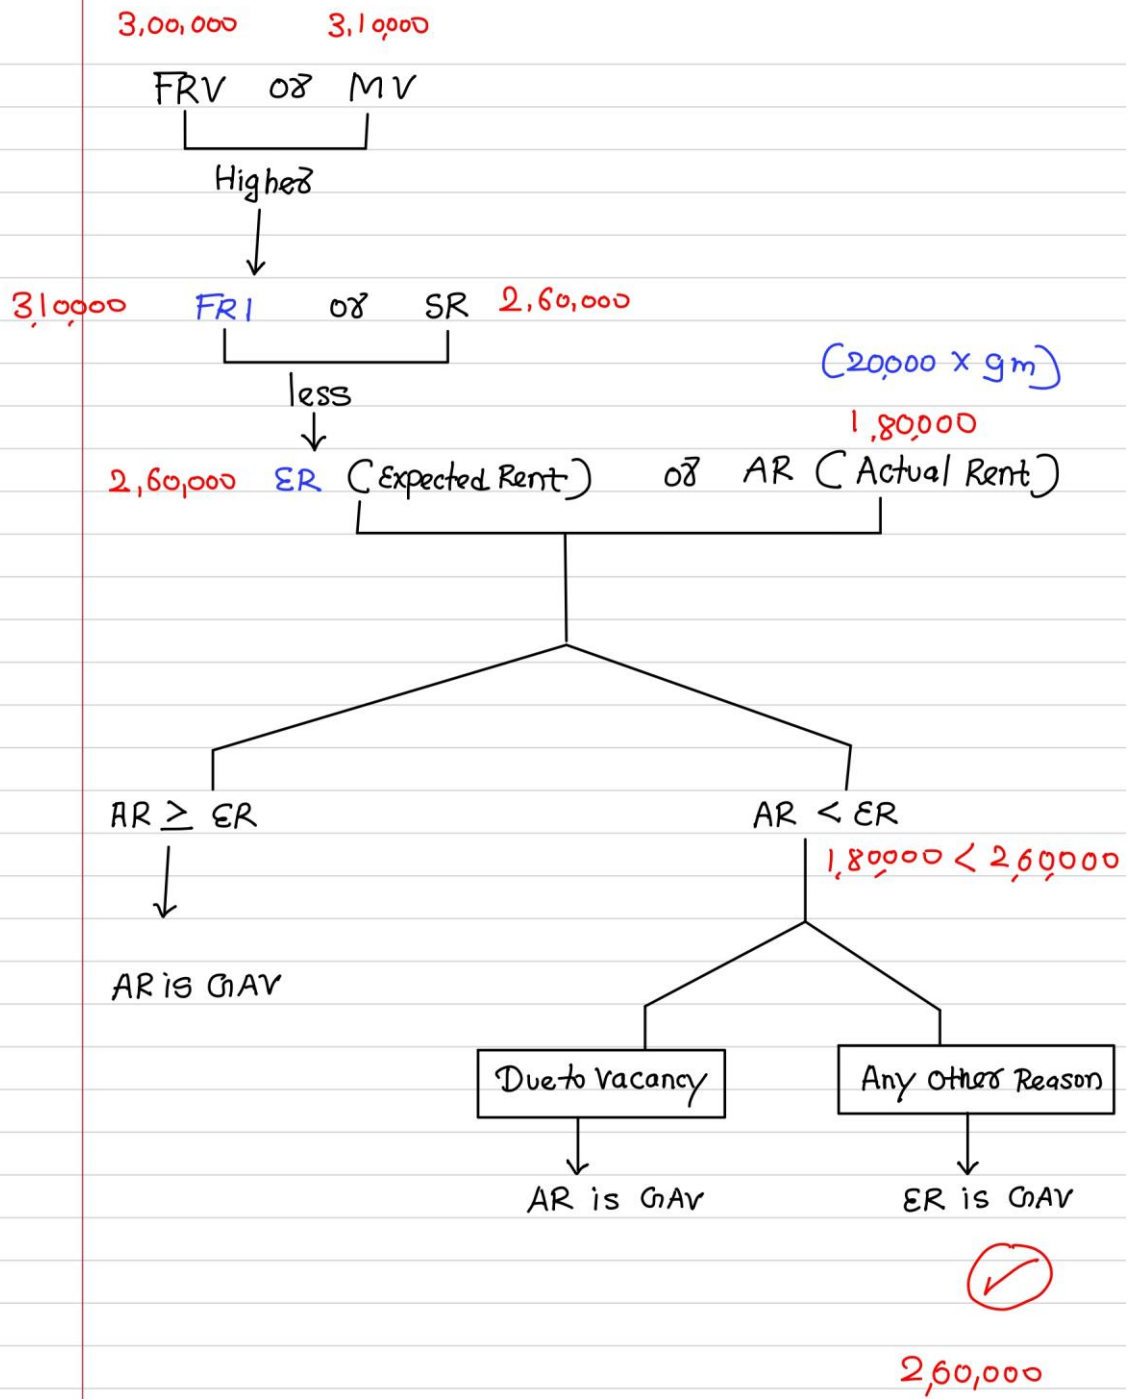 3,00,000 3,10,000
FRV or MV
Higher
3,10,000 FR1 or SR 2,60,000
(20,000 x 9m)
less
1,80,000
2,60,000 ER (Expected Rent) or AR (Actual Rent)
AR ≥ ER AR < ER
1,80,000 < 2,60,000
AR is GAV
Due to Vacancy Any Other Reason
AR is GAV ER is GAV
2,60,000